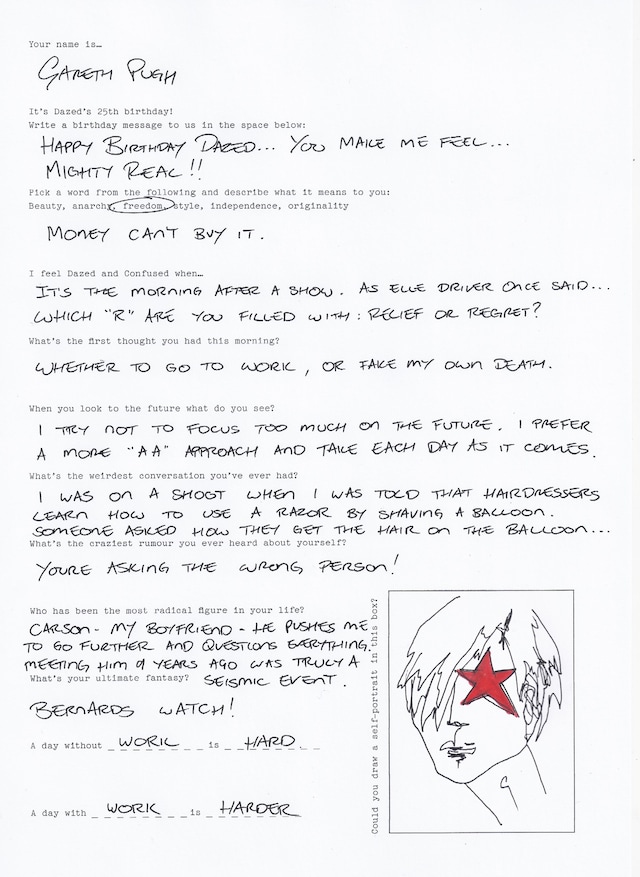 Your name is…
GARETH PUGH
It's Dazed's 25th birthday!
Write a birthday message to us in the space below:
HAPPY BIRTHDAY DAZED... YOU MAKE ME FEEL...
MIGHTY REAL!!
Pick a word from the following and describe what it means to you:
Beauty, anarchy, freedom, style, independence, originality
MONEY CAN'T BUY IT.
I feel Dazed and Confused when…
IT'S THE MORNING AFTER A SHOW. AS ELLE DRIVER ONCE SAID...
WHICH "R" ARE YOU FILLED WITH: RELIEF OR REGRET?
What's the first thought you had this morning?
WHETHER TO GO TO WORK, OR FAKE MY OWN DEATH.
When you look to the future what do you see?
I TRY NOT TO FOCUS TOO MUCH ON THE FUTURE. I PREFER
A MORE "AA" APPROACH AND TAKE EACH DAY AS IT COMES.
What's the weirdest conversation you've ever had?
I WAS ON A SHOOT WHEN I WAS TOLD THAT HAIRDRESSERS
LEARN HOW TO USE A RAZOR BY SHAVING A BALLOON.
SOMEONE ASKED HOW THEY GET THE HAIR ON THE BALLOON...
What's the craziest rumour you ever heard about yourself?
YOURE ASKING THE WRONG PERSON!
Who has been the most radical figure in your life?
CARSON - MY BOYFRIEND - HE PUSHES ME
TO GO FURTHER AND QUESTIONS EVERYTHING.
MEETING HIM 9 YEARS AGO WAS TRULY A
SEISMIC EVENT.
What's your ultimate fantasy?
BERNARDS WATCH!
A day without WORK is HARD
A day with WORK is HARDER
Could you draw a self-portrait in this box?